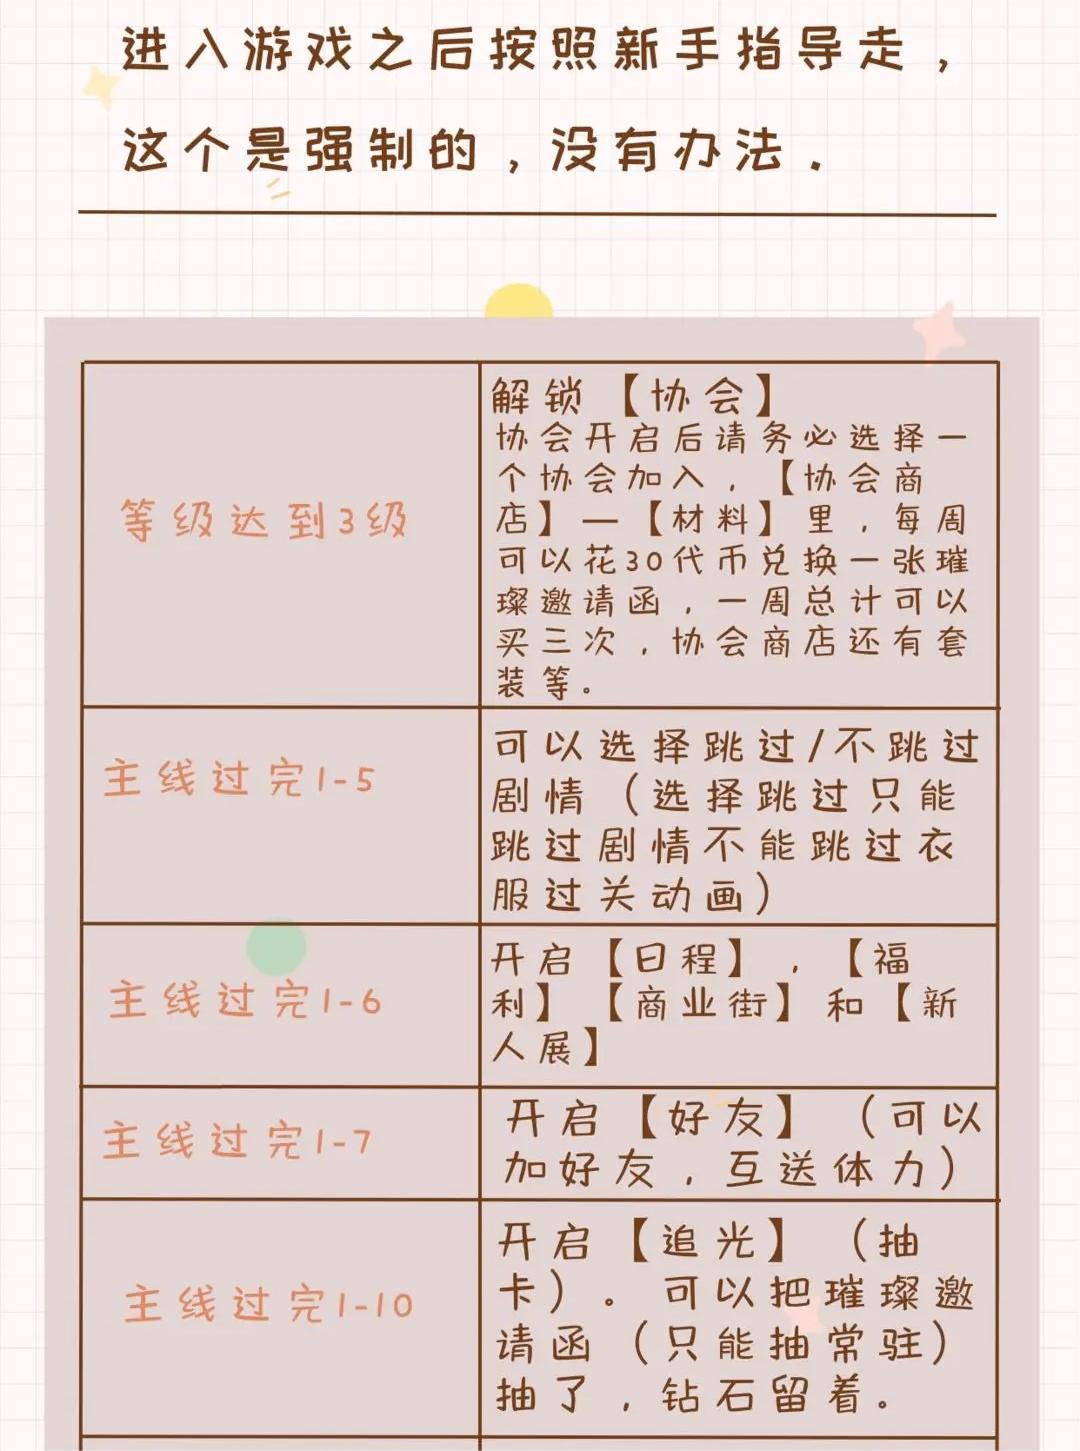 进入游戏之后按照新手指导走，
这个是强制的，没有办法.
等级达到3级
解锁【协会】
协会开启后请务必选择一
个协会加入，【协会商
店】—【材料】里，每周
可以花30代币兑换一张璀
璨邀请函，一周总计可以
买三次，协会商店还有套
装等。
主线过完1-5
可以选择跳过/不跳过
剧情（选择跳过只能
跳过剧情不能跳过衣
服过关动画）
主线过完1-6
开启【日程】，【福
利】【商业街】和【新
人展】
主线过完1-7
开启【好友】（可以
加好友，互送体力）
主线过完1-10
开启【追光】（抽
卡）。可以把璀璨邀
请函（只能抽常驻）
抽了，钻石留着。